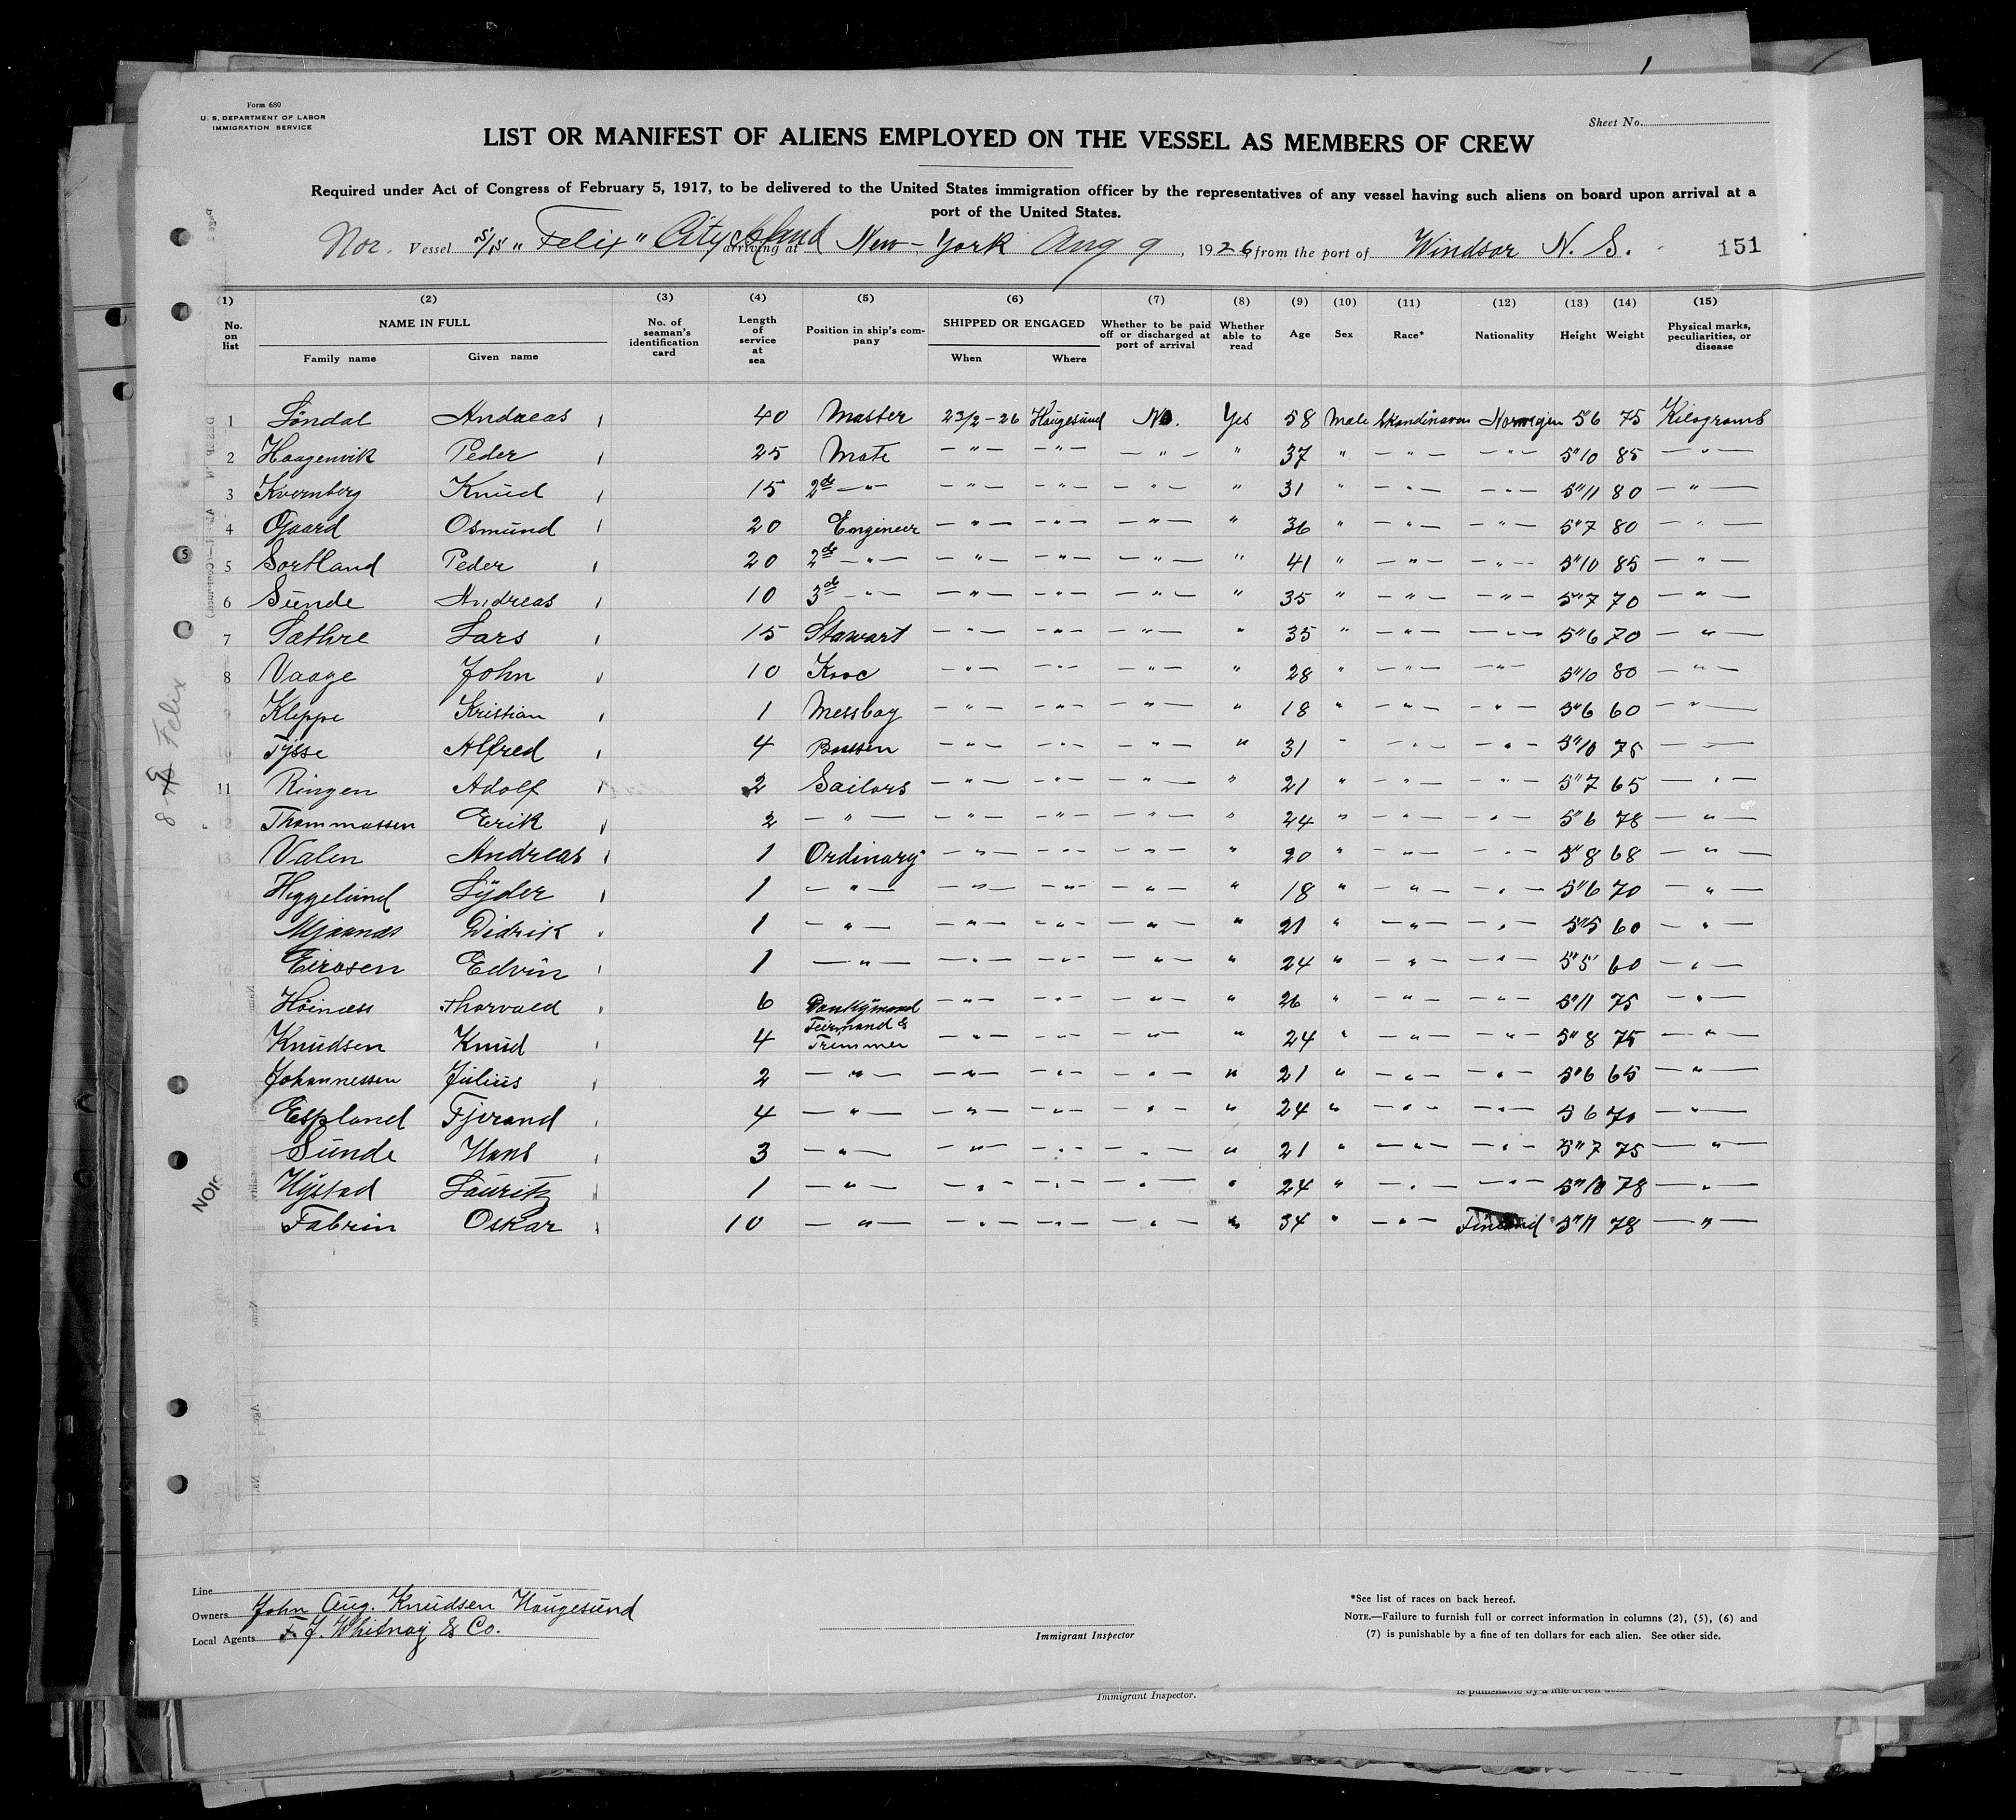 Form 680
U. S. DEPARTMENT OF LABOR
IMMIGRATION SERVICE
Sheet No.
LIST OR MANIFEST OF ALIENS EMPLOYED ON THE VESSEL AS MEMBERS OF CREW
Required under Act of Congress of February 5, 1917, to be delivered to the United States immigration officer by the representatives of any vessel having such aliens on board upon arrival at a
port of the United States.
Nor. Vessel S/S "Felix" City Island arriving at New-York Aug 9, 1926, from the port of Windsor N. S. 151
(1) (2) (3) (4) (5) (6) (7) (8) (9) (10) (11) (12) (13) (14) (15)
No. on list NAME IN FULL Family name Given name No. of seaman's identification card Length of service at sea Position in ship's company SHIPPED OR ENGAGED When Where Whether to be paid off or discharged at port of arrival Whether able to read Age Sex Race* Nationality Height Weight Physical marks, peculiarities, or disease
1 Søndal Andreas 40 Master 23/2-26 Haugesund No. Yes 58 Male Skandinaven Norwegien 5 6 75 Kilograms
2 Haagenvik Peder 25 Mate -"- -"- -"- " 37 " -"- -"- 5"10 85 -"-
3 Kvernberg Knud 15 2de -"- -"- -"- -"- " 31 " -"- -"- 5"11 80 -"-
4 Ogaard Osmund 20 Emgineer -"- -"- -"- " 36 " -"- -"- 5"7 80 -"-
5 Sortland Peder 20 2de -"- -"- -"- -"- " 41 " -"- -"- 5"10 85 -"-
6 Sunde Andreas 10 3de -"- -"- -"- -"- " 35 " -"- -"- 5"7 70 -"-
7 Sæthre Lars 15 Stewart -"- -"- -"- " 35 " -"- -"- 5"6 70 -"-
8 Vaage John 10 Kooc -"- -"- -"- " 28 " -"- -"- 5"10 80 -"-
9 Kleppe Kristian 1 Messboy -"- -"- -"- " 18 " -"- -"- 5"6 60 -"-
10 Tysse Alfred 4 Boussen -"- -"- -"- " 31 " -"- -"- 5"10 75 -"-
11 Ringen Adolf 2 Sailors -"- -"- -"- " 21 " -"- -"- 5"7 65 -"-
12 Thommassen Eerik 2 -"- -"- -"- -"- " 24 " -"- -"- 5"6 78 -"-
13 Valen Andreas 1 Ordinary -"- -"- -"- " 20 " -"- -"- 5"8 68 -"-
14 Heggelund Lyder 1 -"- -"- -"- -"- " 18 " -"- -"- 5"6 70 -"-
Mjaanæs Didrik 1 -"- -"- -"- -"- " 21 " -"- -"- 5"5 60 -"-
16 Eirosen Edvin 1 -"- -"- -"- -"- " 24 " -"- -"- 5"5 60 -"-
Høinæss Thorvald 6 Donkymand -"- -"- -"- " 26 " -"- -"- 5"11 75 -"-
Knudsen Knud 4 Feirmand & Tremmer -"- -"- -"- " 24 " -"- -"- 5"8 75 -"-
Johannessen Julius 2 -"- -"- -"- -"- " 21 " -"- -"- 5"6 65 -"-
Espland Tjerand 4 -"- -"- -"- -"- " 24 " -"- -"- 5 6 70 -"-
Sunde Hans 3 -"- -"- -"- -"- " 21 " -"- -"- 5"7 75 -"-
Hystad Lauritz 1 -"- -"- -"- -"- " 24 " -"- -"- 5"10 78 -"-
Fabrin Oskar 10 -"- -"- -"- -"- " 34 " -"- Finland 5"11 78 -"-
Felix
Line
Owners John Aug. Knudsen Haugesund
Local Agents F. J. Whitnay & Co.
Immigrant Inspector
*See list of races on back hereof.
NOTE.—Failure to furnish full or correct information in columns (2), (5), (6) and
(7) is punishable by a fine of ten dollars for each alien. See other side.
Immigrant Inspector.